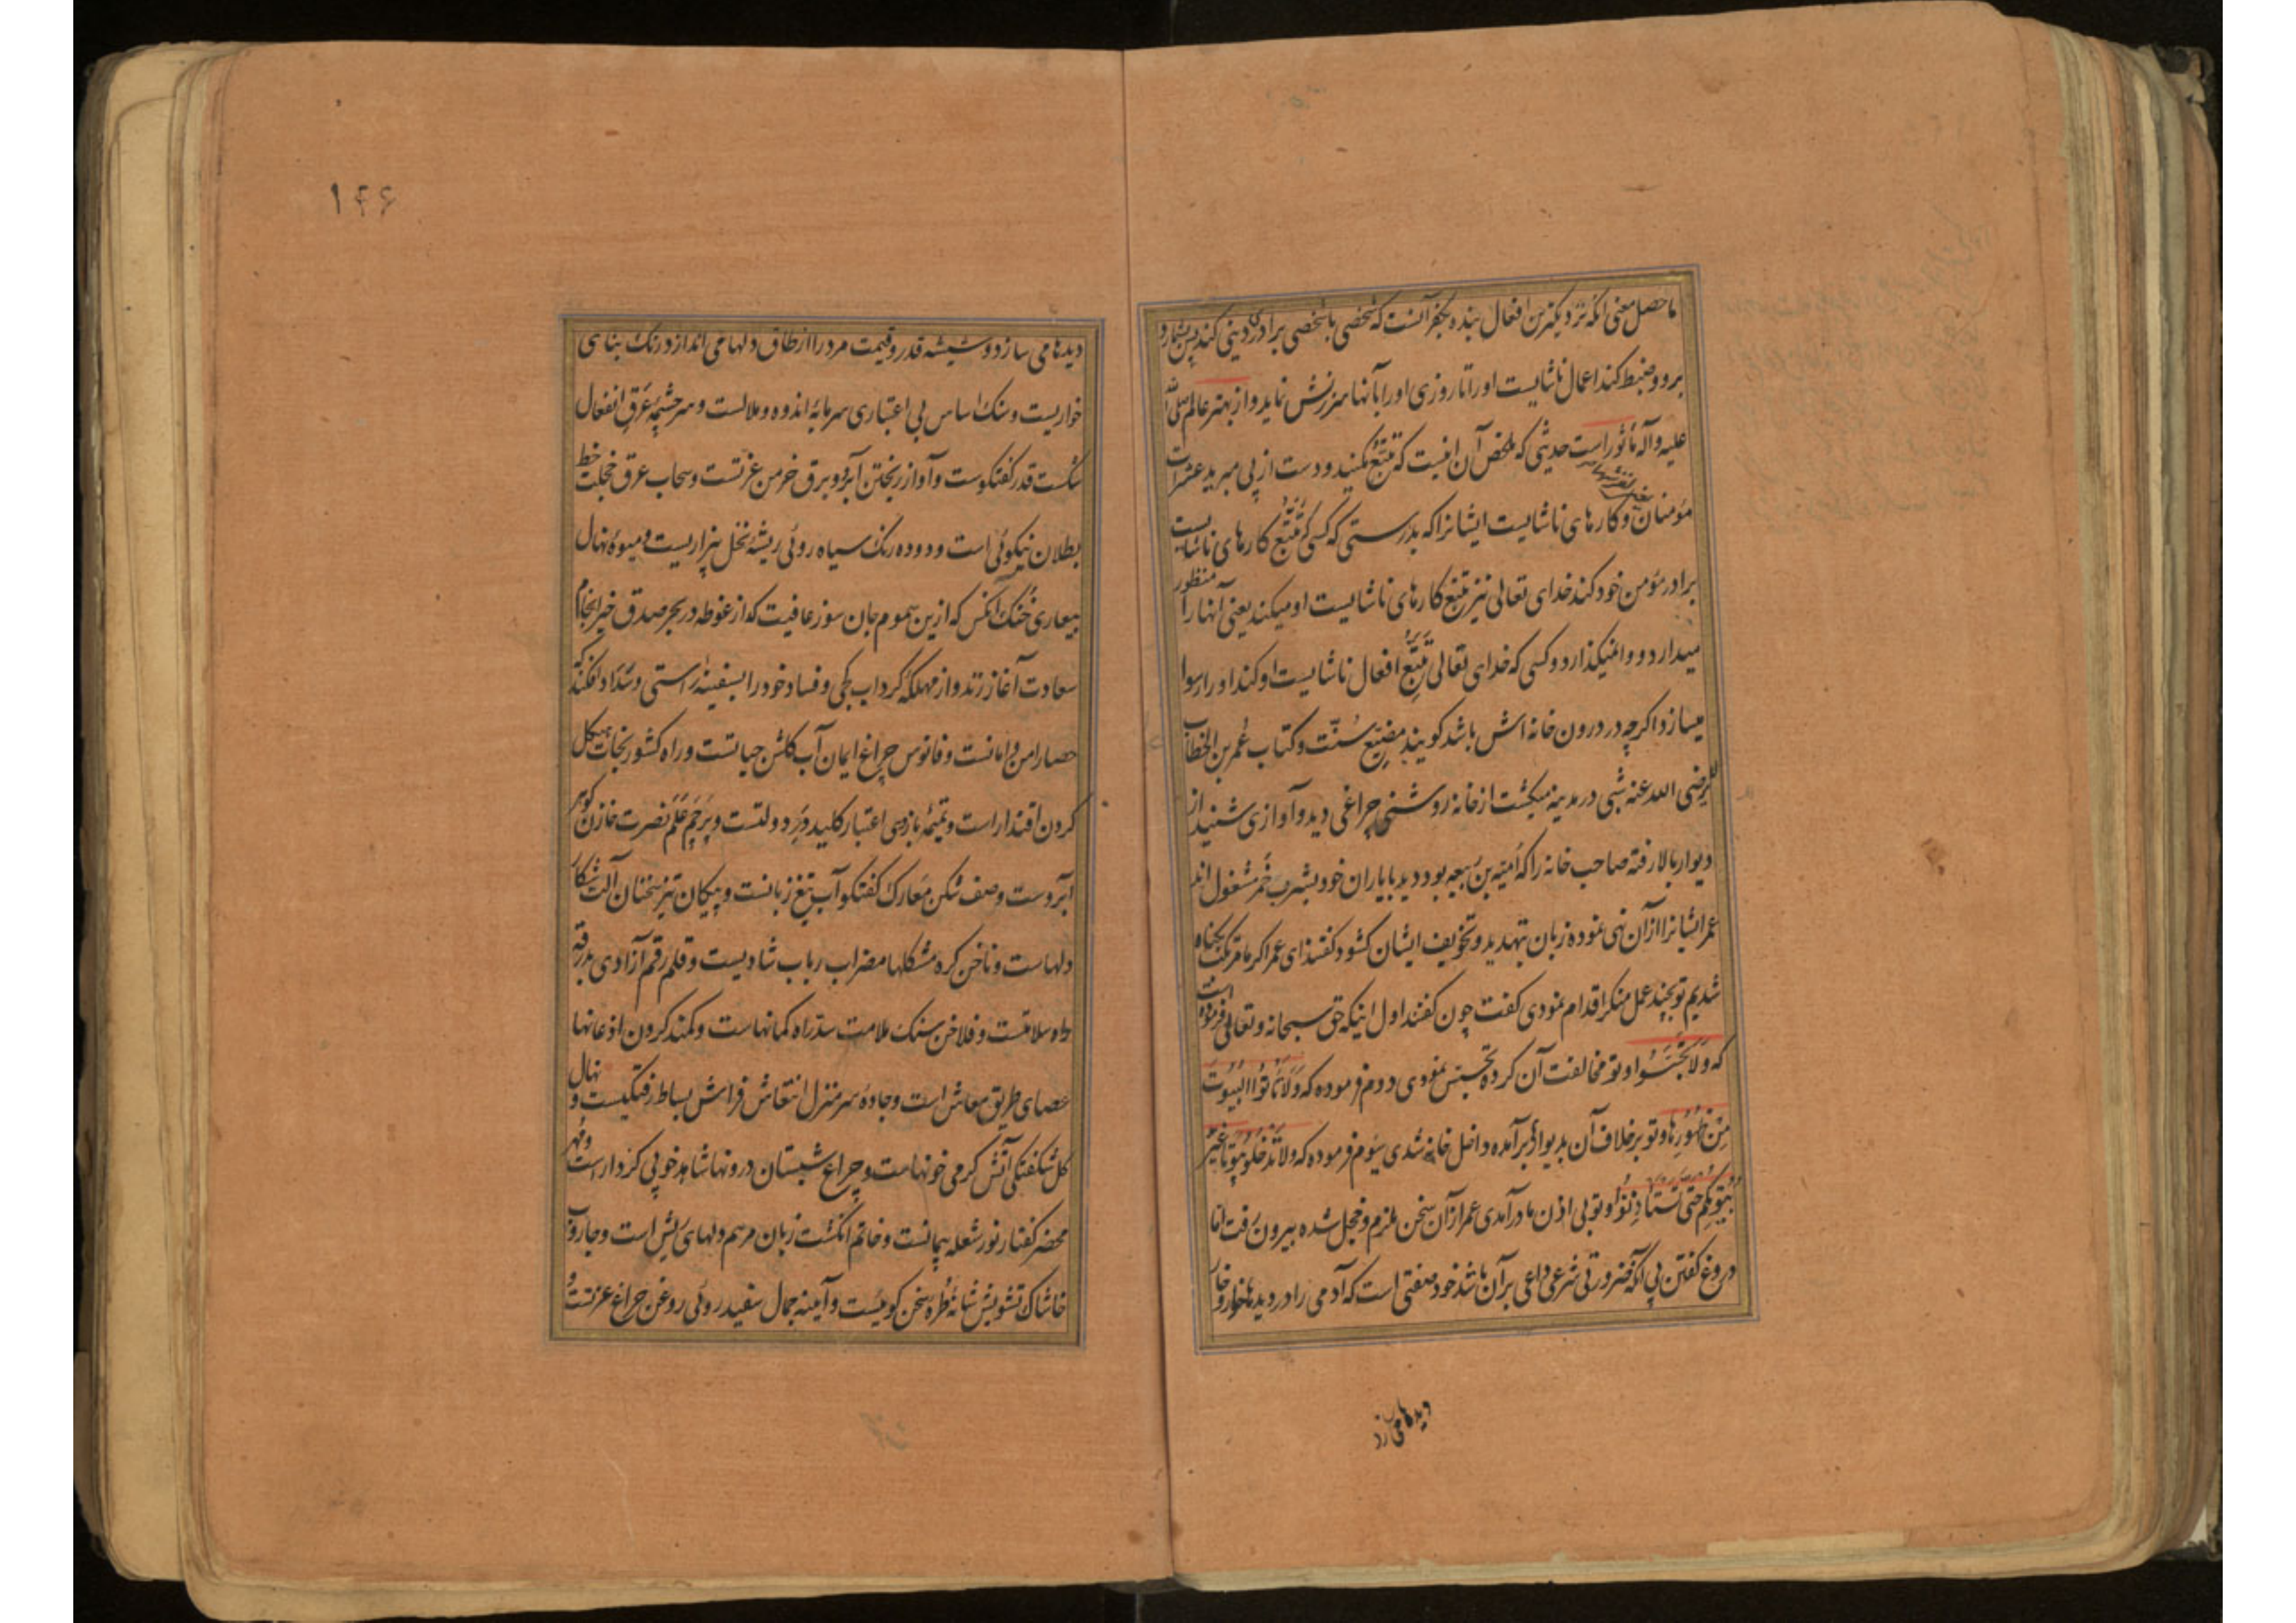 ماحصل معنی آنکه نزدیکترین افعال بنده بکفر آنست که شخصی با شخصی برادری دینی کند پس بشمارد
برو و ضبط کند اعمال ناشایست اورا تا روزی اورا بآنها سرزنش نماید و از بهتر عالم صلی الله
علیه و آله مأثور است حدیثی که ملخص آن اینست که تتبع مکنید و دست از پی مبرید عثرات
مؤمنان و کارهای ناشایست ایشانرا که بدرستی که کسی که تتبع کارهای ناشایست
برادر مؤمن خود کند خدای تعالی نیز تتبع کارهای ناشایست او میکند یعنی آنها را منظور
میدارد و وا نمیگذارد و کسی که خدای تعالی تتبع افعال ناشایست او کند او را رسوا
میسازد اگرچه در درون خانه اش باشد گویند مضیع سنت و کتاب عمر بن الخطاب
رضی الله عنه شبی در مدینه میگشت از خانه روشنی چراغی دید و آوازی شنید از
دیوار بالا رفته صاحب خانه را که امیة بن ربیعه بود دید با یاران خود بشرب خمر مشغول اند
عمر ایشانرا از آن نهی نموده زبان بتهدید و تخویف ایشان گشود گفتند ای عمر اگر ما مرتکب یکگناه
شدیم تو بچند عمل منکر اقدام نمودی گفت چون گفتند اول اینکه حق سبحانه و تعالی فرموده است
که وَلَا تَجَسَّسُوا و تو مخالفت آن کرده تجسس نمودی دوم فرموده که وَلَا تَأتُوا البُیُوتَ
مِن ظُهُورِهَا و تو برخلاف آن بدیوار برآمده داخل خانه شدی سیوم فرموده که ولا تَدخُلُوا بُیُوتًا غَیرَ
بُیُوتِکُم حَتّی تَستَاذِنُوا و تو بی اذن ما درآمدی عمر از آن سخن ملزم و خجل شده بیرون رفت اما
دروغ گفتن بی آنکه ضرورتی شرعی داعی برآن باشد خود صفتی است که آدمی را در دیدها خوار و خار
دیدها می سازد
۱۴۶
دیدها می سازد و شیشه قدر و قیمت مرد را از طاق دلها می اندازد رنک بنای
خواریست و سنک اساس بی اعتباری سرمایه اندوه و ملالست و سرچشمه عرق انفعال
شکست قدر گفتگوست و آواز ریختن آبرو برق خرمن عزتست و سحاب عرق خجلت خط
بطلان نیکوئی است و دوده رنک سیاه روئی ریشه نخل بیزاریست و میوه نهال
بیعاری خنک آنکس که ازین سموم جان سوز عافیت گداز غوطه در بحر صدق خیر انجام
سعادت آغاز زند و از مهلکه گرداب کجی و فساد خود را بسفینه راستی و سداد افکند که
حصار امن و امانست و فانوس چراغ ایمان آب گلشن حیاتست و راه کشور نجات هیکل
گردن اقتدار است و تمیمه بازوی اعتبار کلید در دولتست و پرچم علم نصرت خازن گوهر
آبروست و صف شکن معارک گفتگو آب تیغ زبانست و پیکان تیر سخنان آلت شکار
دلهاست و ناخن گره مشکلها مضراب رباب شادیست و قلم رقم آزادی بدرقه
راه سلامتست و فلاخن سنک ملامت سد راه گمانهاست و کمند گردن اذعانها
عصای طریق معاش است و جاده سرمنزل انتعاش فراش بساط رفتگیست و نهال
گل شکفتگی آتش گرمی خونهاست و چراغ شبستان درونها شاهد خوبی کردار است و مهر
محضر گفتار نور شعله پیمانست و خاتم انگشت زبان مرهم دلهای ریش است و جاروب
خاشاک تشویش شانه طره سخن گوئیست و آیینه جمال سفید روئی روغن چراغ عزتست و